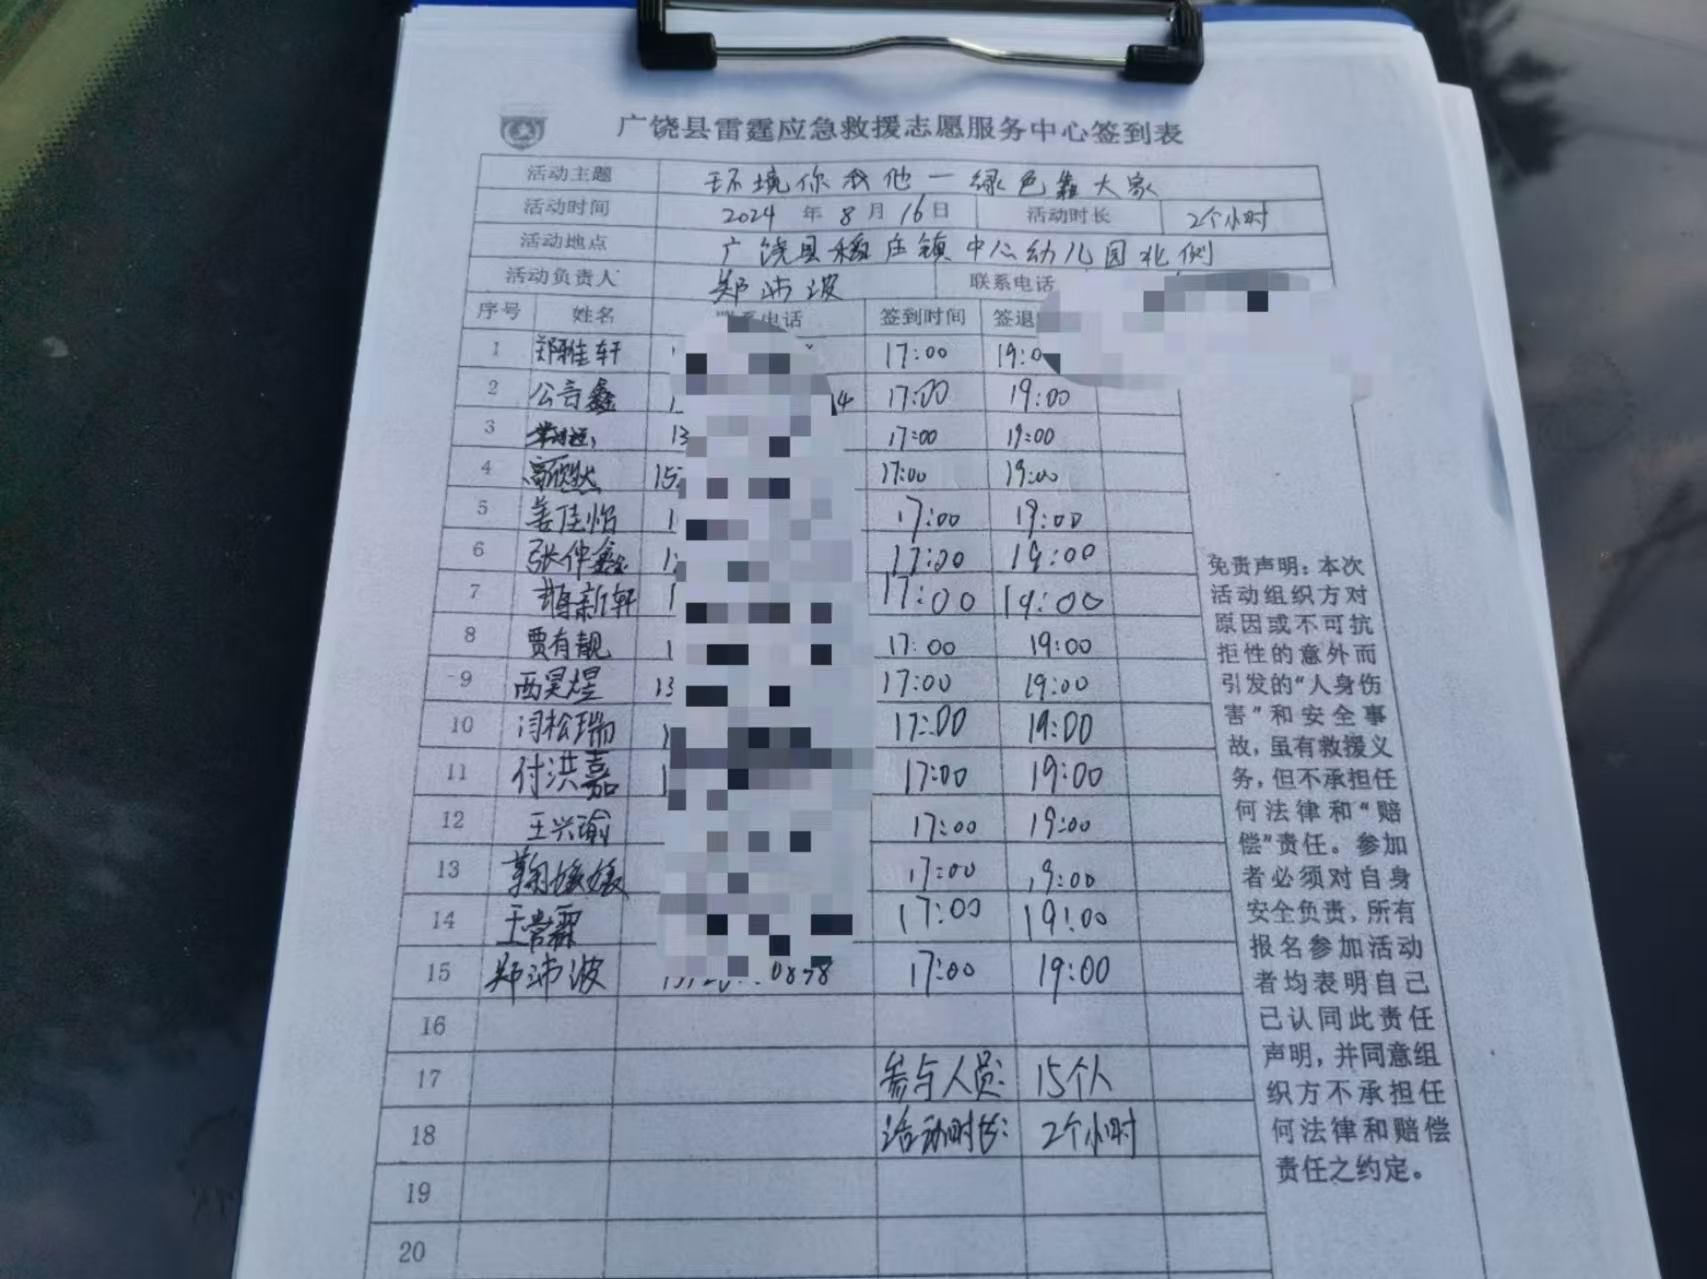 广饶县雷霆应急救援志愿服务中心签到表
活动主题 环境你我他一绿色靠大家
活动时间 2024 年 8 月 16 日 活动时长 2个小时
活动地点 广饶县稻庄镇中心幼儿园北侧
活动负责人 郑沛波 联系电话
序号 姓名 联系电话 签到时间 签退
1 郑雅轩 17:00 19:0
2 公言鑫 4 17:00 19:00
3 13 17:00 19:00
4 高欣然 15 17:00 19:00
5 姜佳怡 1 17:00 19:00
6 张伴鑫 1 17:00 19:00
7 新轩 1 17:00 19:00
8 贾有靓 1 17:00 19:00
9 西昊煜 13 17:00 19:00
10 闫松瑞 1 17:00 19:00
11 付洪嘉 1 17:00 19:00
12 王兴瑜 17:00 19:00
13 媛媛 17:00 19:00
14 王常霖 17:00 19:00
15 郑沛波 0878 17:00 19:00
16
17 参与人员: 15个人
18 活动时长: 2个小时
19
20
免责声明:本次
活动组织方对
原因或不可抗
拒性的意外而
引发的“人身伤
害”和安全事
故,虽有救援义
务,但不承担任
何法律和“赔
偿”责任。参加
者必须对自身
安全负责,所有
报名参加活动
者均表明自己
已认同此责任
声明,并同意组
织方不承担任
何法律和赔偿
责任之约定。